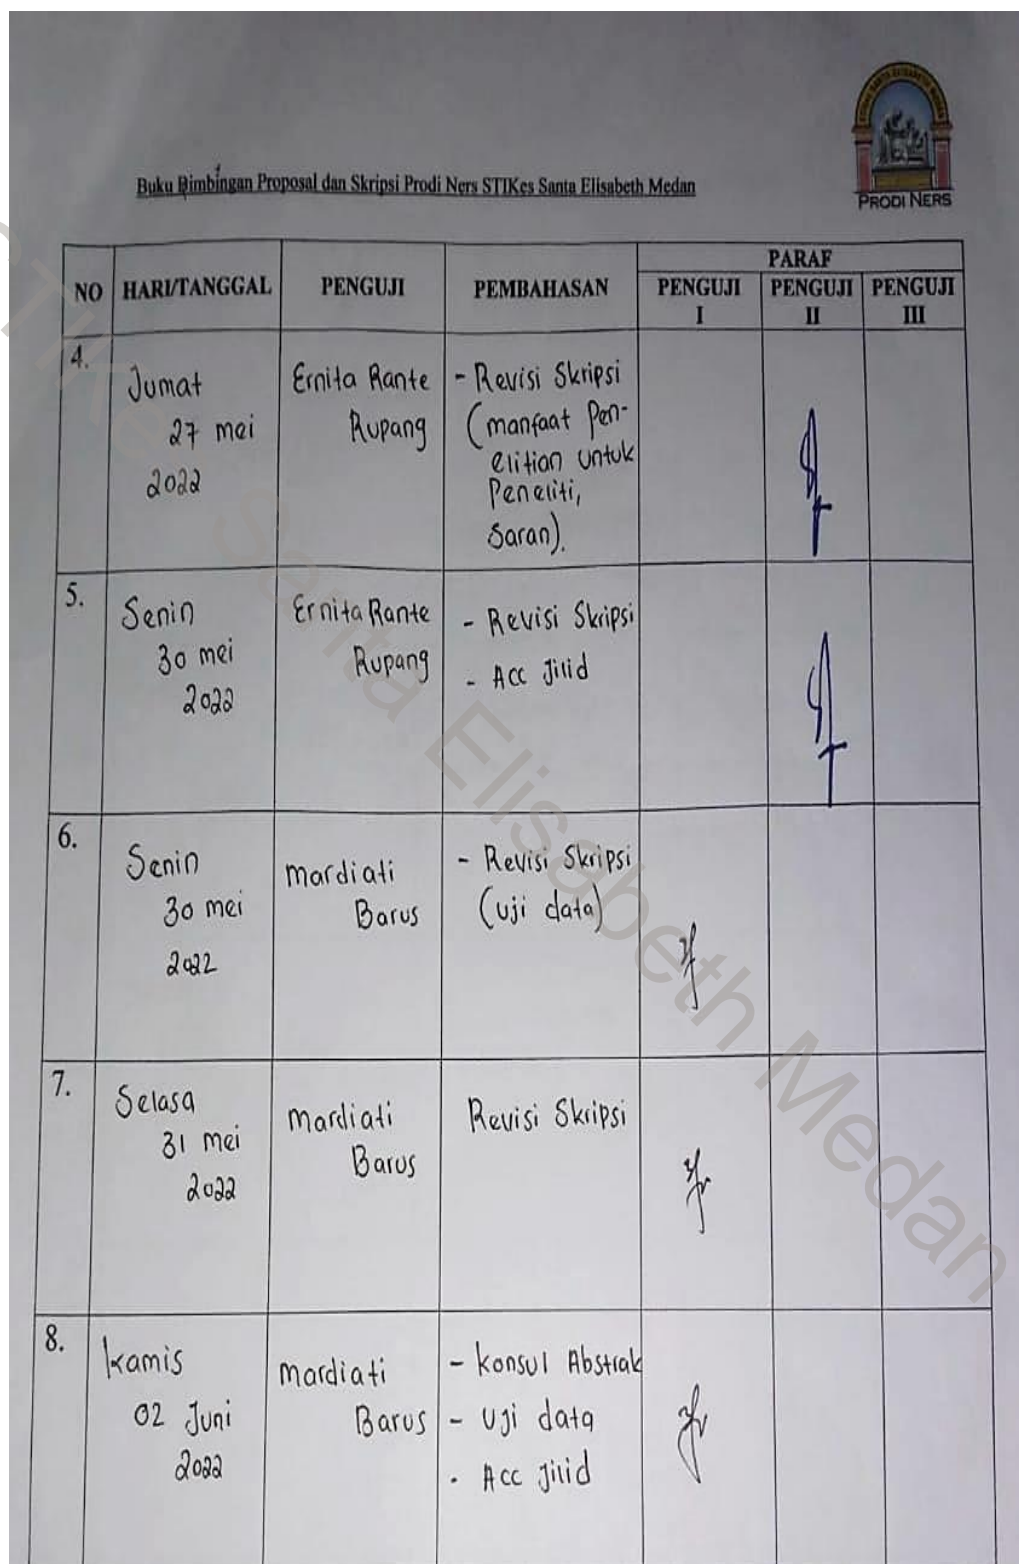 Buku Bimbingan Proposal dan Skripsi Prodi Ners STIKes Santa Elisabeth Medan
PRODI NERS
NO HARI/TANGGAL PENGUJI PEMBAHASAN PARAF
PENGUJI I PENGUJI II PENGUJI III
4.
Jumat
27 mei
2022
Ernita Rante
Rupang
- Revisi Skripsi
(manfaat Pen-
elitian untuk
Peneliti,
Saran).
5.
Senin
30 mei
2022
Ernita Rante
Rupang
- Revisi Skripsi
- Acc Jilid
6.
Senin
30 mei
2022
mardiati
Barus
- Revisi Skripsi
(uji data)
7.
Selasa
31 mei
2022
mardiati
Barus
Revisi Skripsi
8.
Kamis
02 Juni
2022
mardiati
Barus
- Konsul Abstrak
- Uji data
- Acc Jilid
STIKes Santa Elisabeth Medan